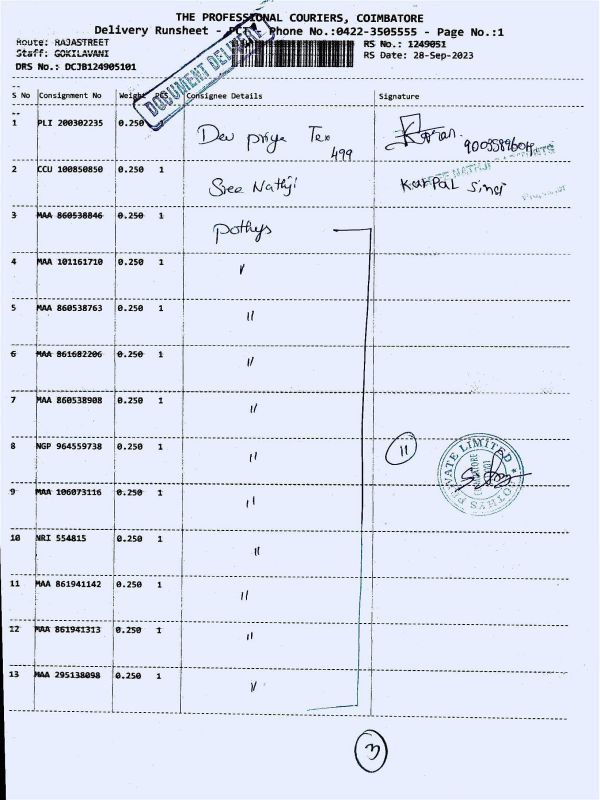 THE PROFESSIONAL COURIERS, COIMBATORE
Delivery Runsheet - Phone No.:0422-3505555 - Page No.:1
Route: RAJASTREET
Staff: GOKILAVANI
DRS No.: DCJB124905101
RS No.: 1249051
RS Date: 28-Sep-2023
DOCUMENT DELIVERY
S No Consignment No Weight PCS Consignee Details Signature
1 PLI 200302235 0.250 1 Dev priya Tex
499
2 CCU 100850850 0.250 1 Sree Nathji Karpal Singh
3 MAA 860538846 0.250 1 pothys
4 MAA 101161710 0.250 1 "
5 MAA 860538763 0.250 1 "
6 MAA 861682206 0.250 1 "
7 MAA 860538908 0.250 1 "
8 NGP 964559738 0.250 1 " 11
POTHYS PRIVATE LIMITED
COIMBATORE
9 MAA 106073116 0.250 1 "
10 NRI 554815 0.250 1 "
11 MAA 861941142 0.250 1 "
12 MAA 861941313 0.250 1 "
13 MAA 295138098 0.250 1 "